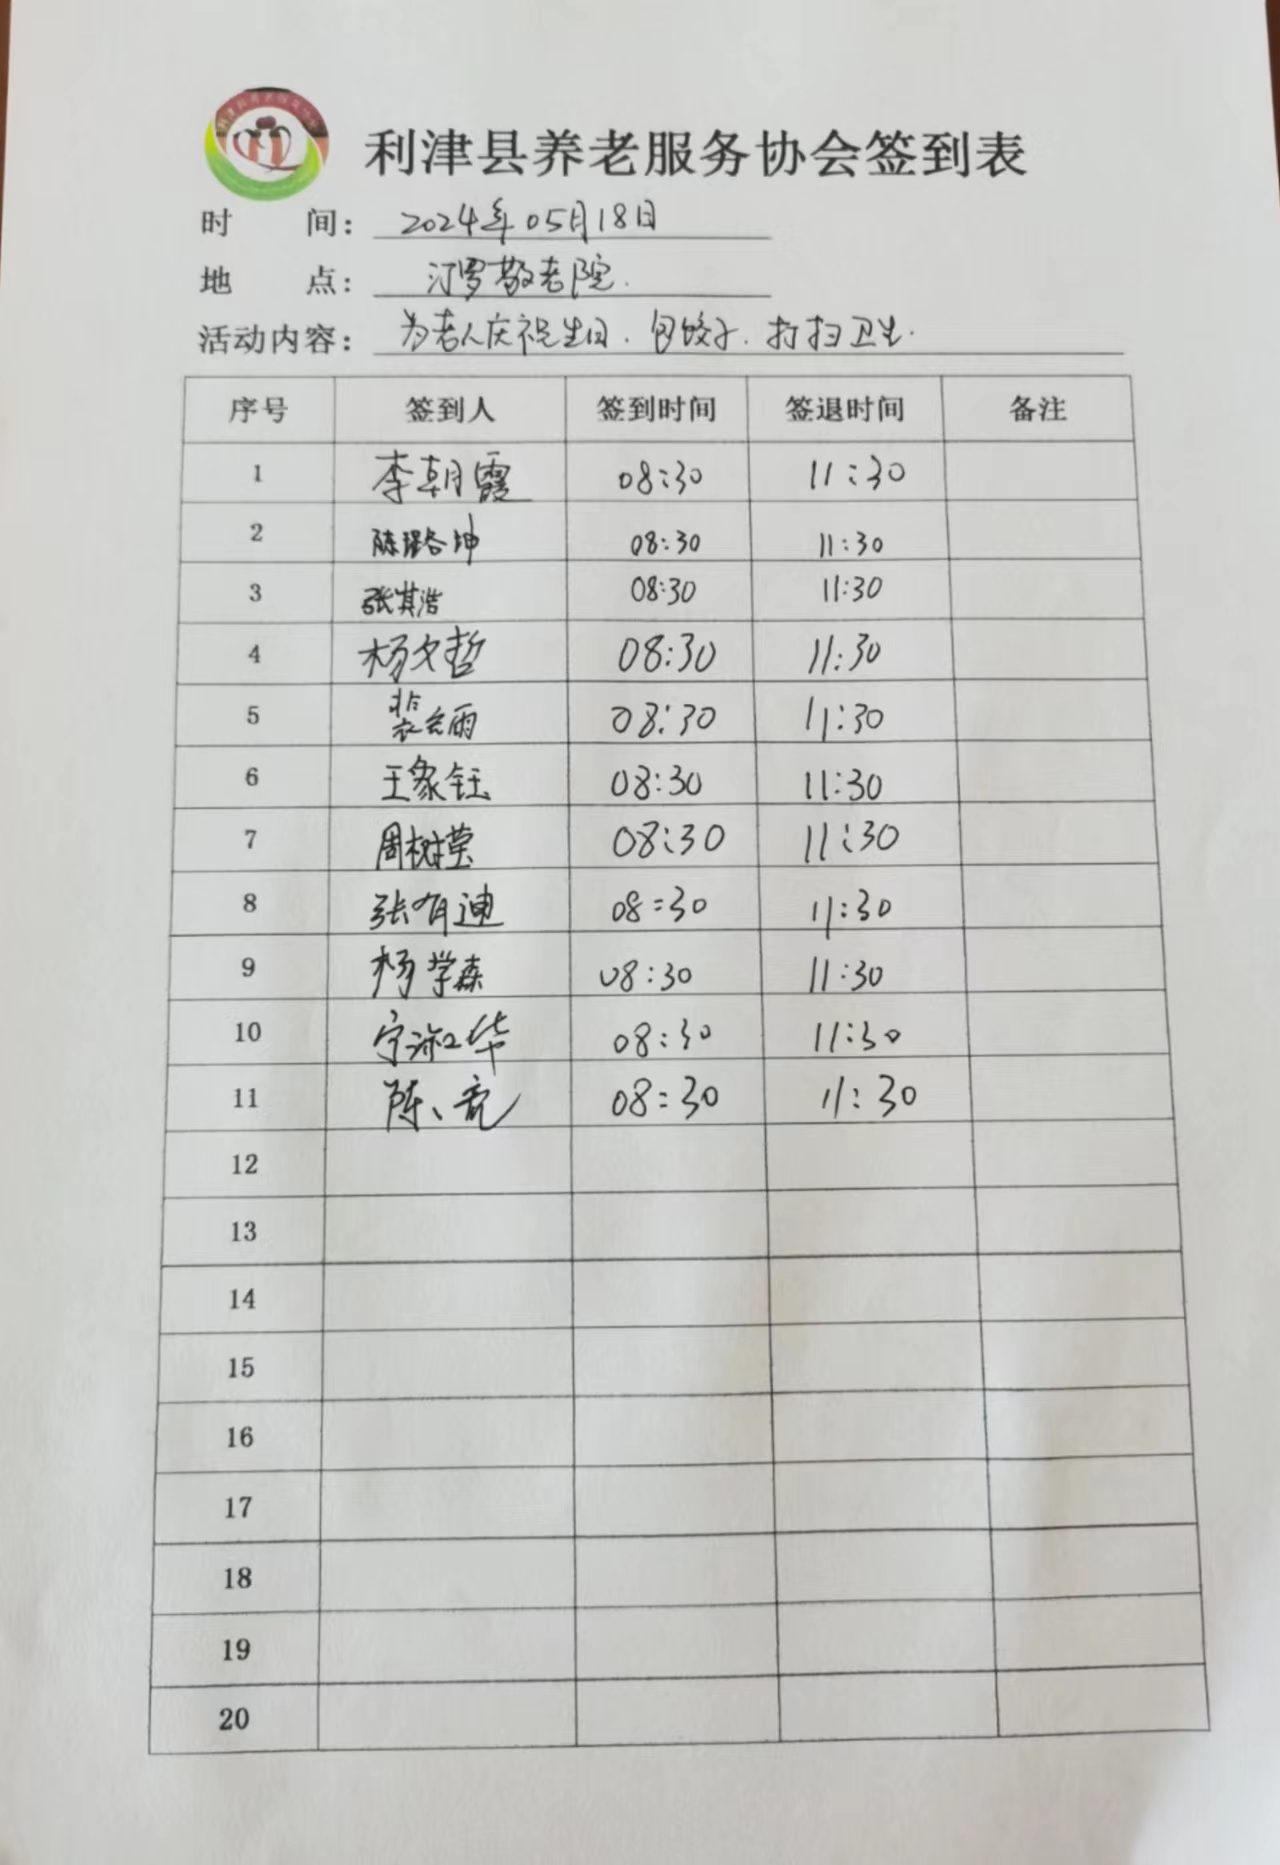 利津县养老服务协会签到表
时 间： 2024年05月18日
地 点： 汀罗敬老院.
活动内容： 为老人庆祝生日. 包饺子. 打扫卫生.
序号 签到人 签到时间 签退时间 备注
1 李朝霞 08:30 11:30
2 陈璐坤 08:30 11:30
3 张其浩 08:30 11:30
4 杨文哲 08:30 11:30
5 裴会雨 08:30 11:30
6 王家钰 08:30 11:30
7 周树莹 08:30 11:30
8 张有迪 08:30 11:30
9 杨学森 08:30 11:30
10 宁淑华 08:30 11:30
11 陈亮 08:30 11:30
12
13
14
15
16
17
18
19
20